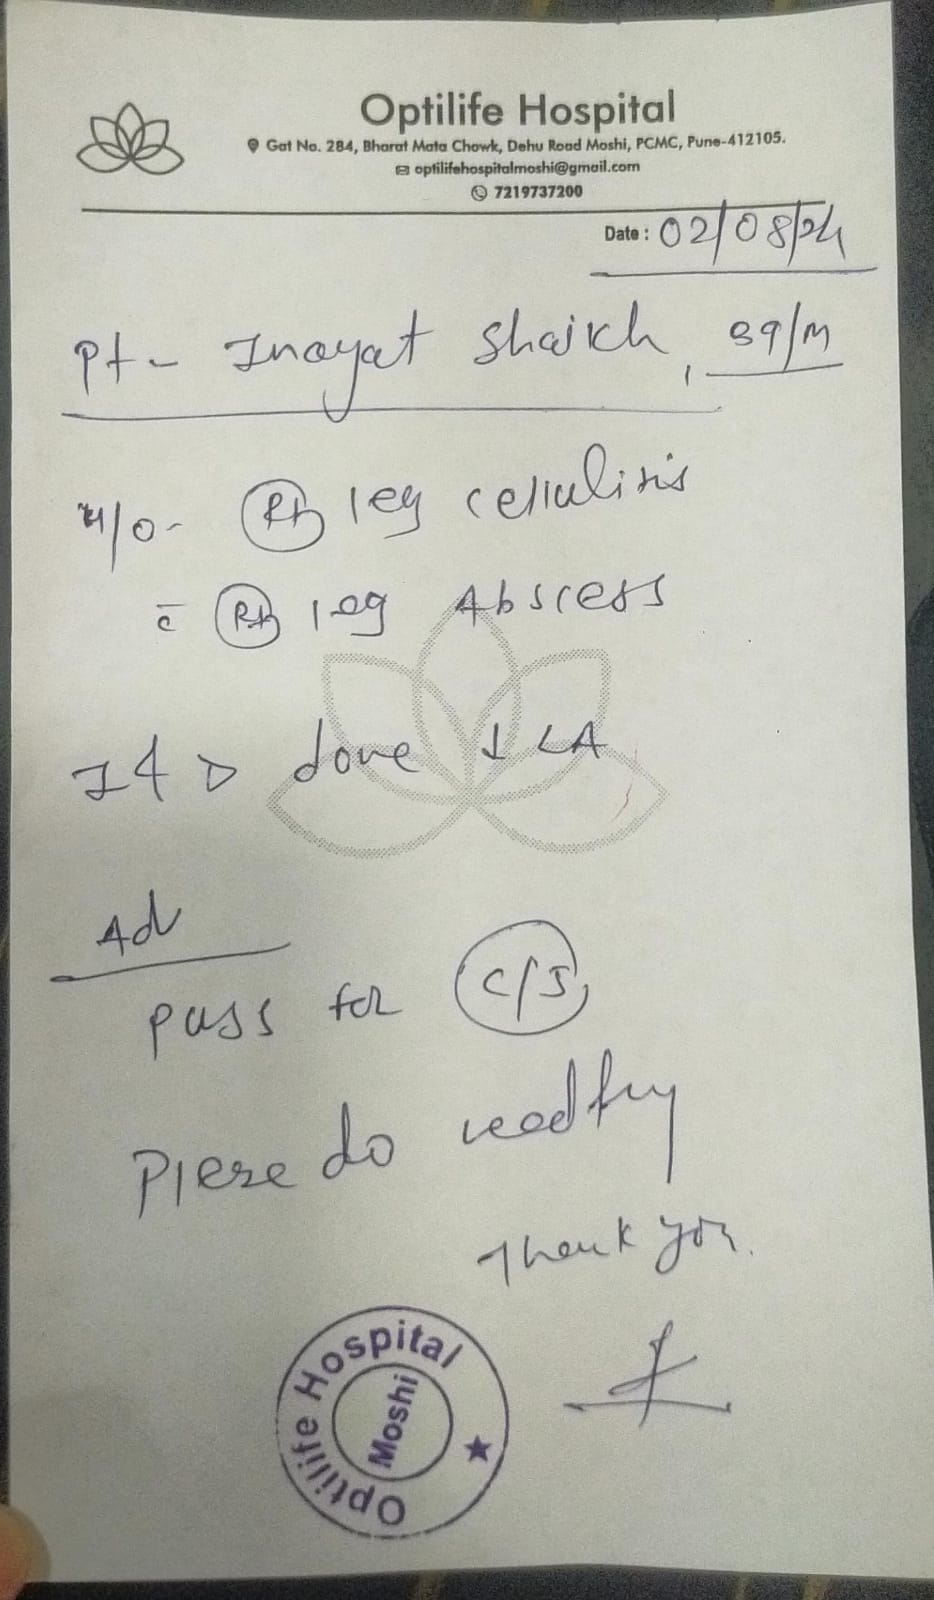 Optilife Hospital
Gat No. 284, Bharat Mata Chowk, Dehu Road Moshi, PCMC, Pune-412105.
optilifehospitalmoshi@gmail.com
7219737200
Date: 02/08/24
Pt - Inayat Shaikh, 39/M
H/O - Rt leg cellulitis
c̄ Rt leg Abscess
I & D done ↓ LA
Ad
puss for C/S
Plese do
Thank you.
Optilife Hospital
Moshi